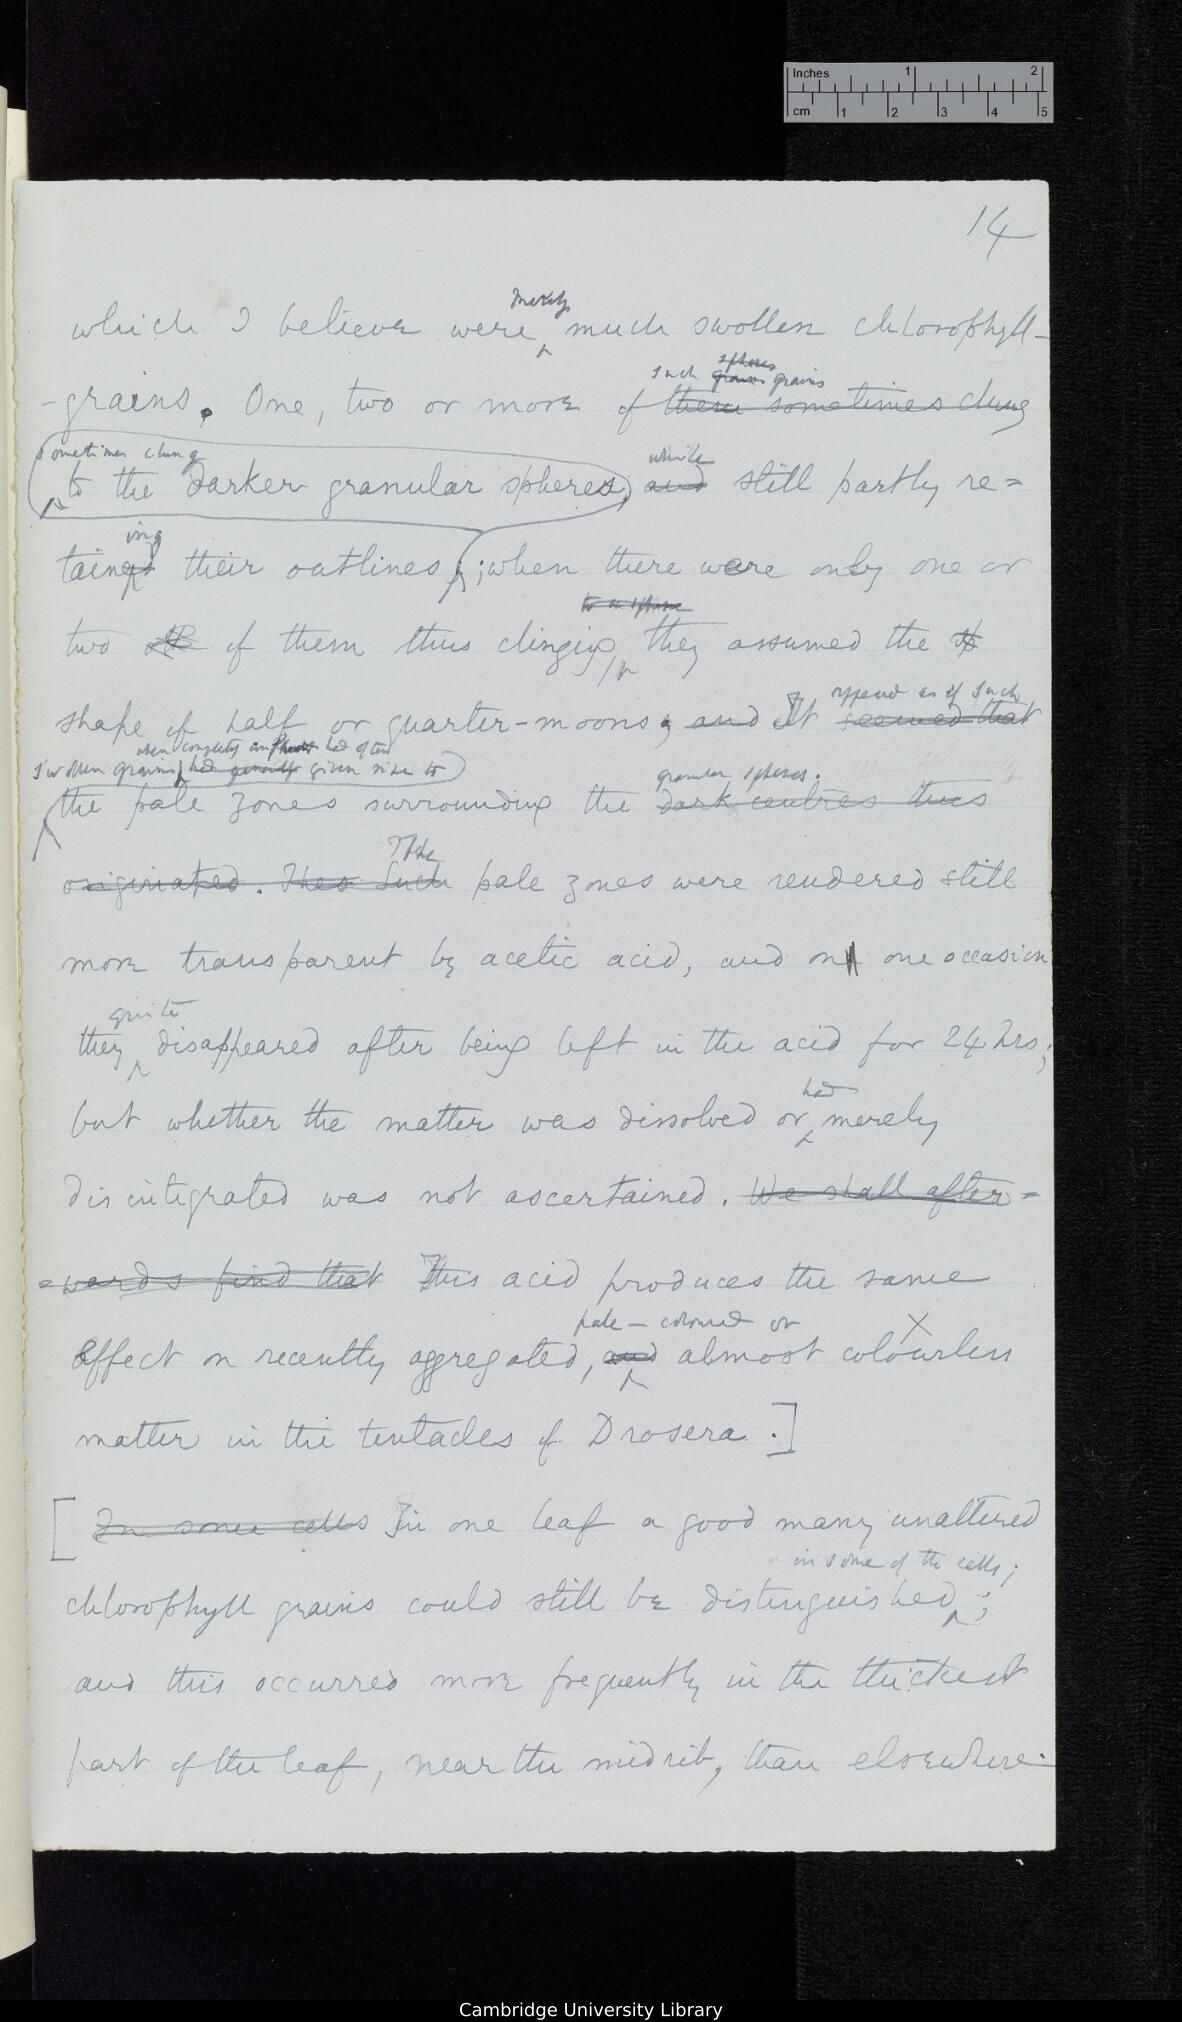 Inches 1 2
cm 1 2 3 4 5
14
merely
which I believe were much swollen chlorophyll-
spheres
such grains grains
-grains. One, two or more of these sometimes clung
sometimes clung while
to the darker granular spheres, and still partly re=
ing
tained their outlines; when there were only one or
to a sphere
two of them thus clinging, they assumed the
shape of half or quarter-moons; and It seemed that
appeared as if such
when completely had often
swollen grains, had generally given rise to
granular spheres.
the pale zones surrounding the dark centres thus
The
originated. These Such pale zones were rendered still
more transparent by acetic acid, and on one occasion
quite
they disappeared after being left in the acid for 24 hrs;
had
but whether the matter was dissolved or merely
disintegrated was not ascertained. We shall after=
=wards find that This acid produces the same
pale-coloured or X
effect on recently aggregated, and almost colourless
matter in the tentacles of Drosera.]
[In some cells In one leaf a good many unaltered
in some of the cells;
chlorophyll grains could still be distinguished;
and this occurred more frequently in the thickest
part of the leaf, near the midrib, than elsewhere.
Cambridge University Library